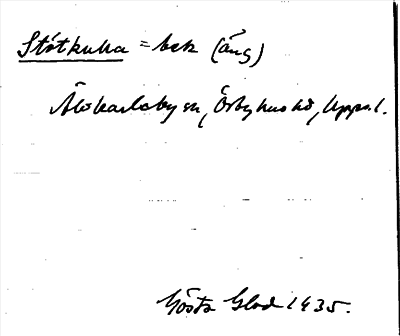 Stötkuka = bek (äng)
Älvkarleby sn, Örbyhus hd, Upps. l.
Gösta Glad 1935.